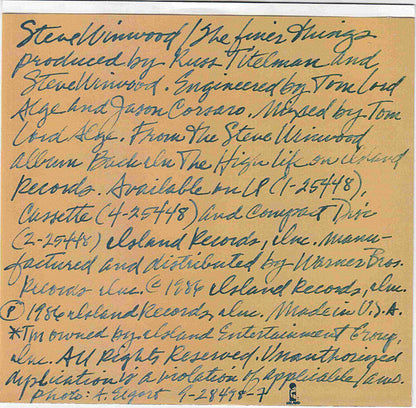 Steve Winwood/The Finer Things
produced by Russ Titelman and
Steve Winwood. Engineered by Tom Lord
Alge and Jason Corsaro. Mixed by Tom
Lord Alge. From The Steve Winwood
album Back In The High Life on Island
Records. Available on LP (1-25448),
Cassette (4-25448) and Compact Disc
(2-25448) Island Records, Inc. Manu-
factured and distributed by Warner Bros.
Records Inc. © 1986 Island Records, Inc.
℗ 1986 Island Records, Inc. Made in U.S.A.
*TM owned by Island Entertainment Group,
Inc. All Rights Reserved. Unauthorized
duplication is a violation of applicable laws.
Photo: A. Elgort 9-28498-7